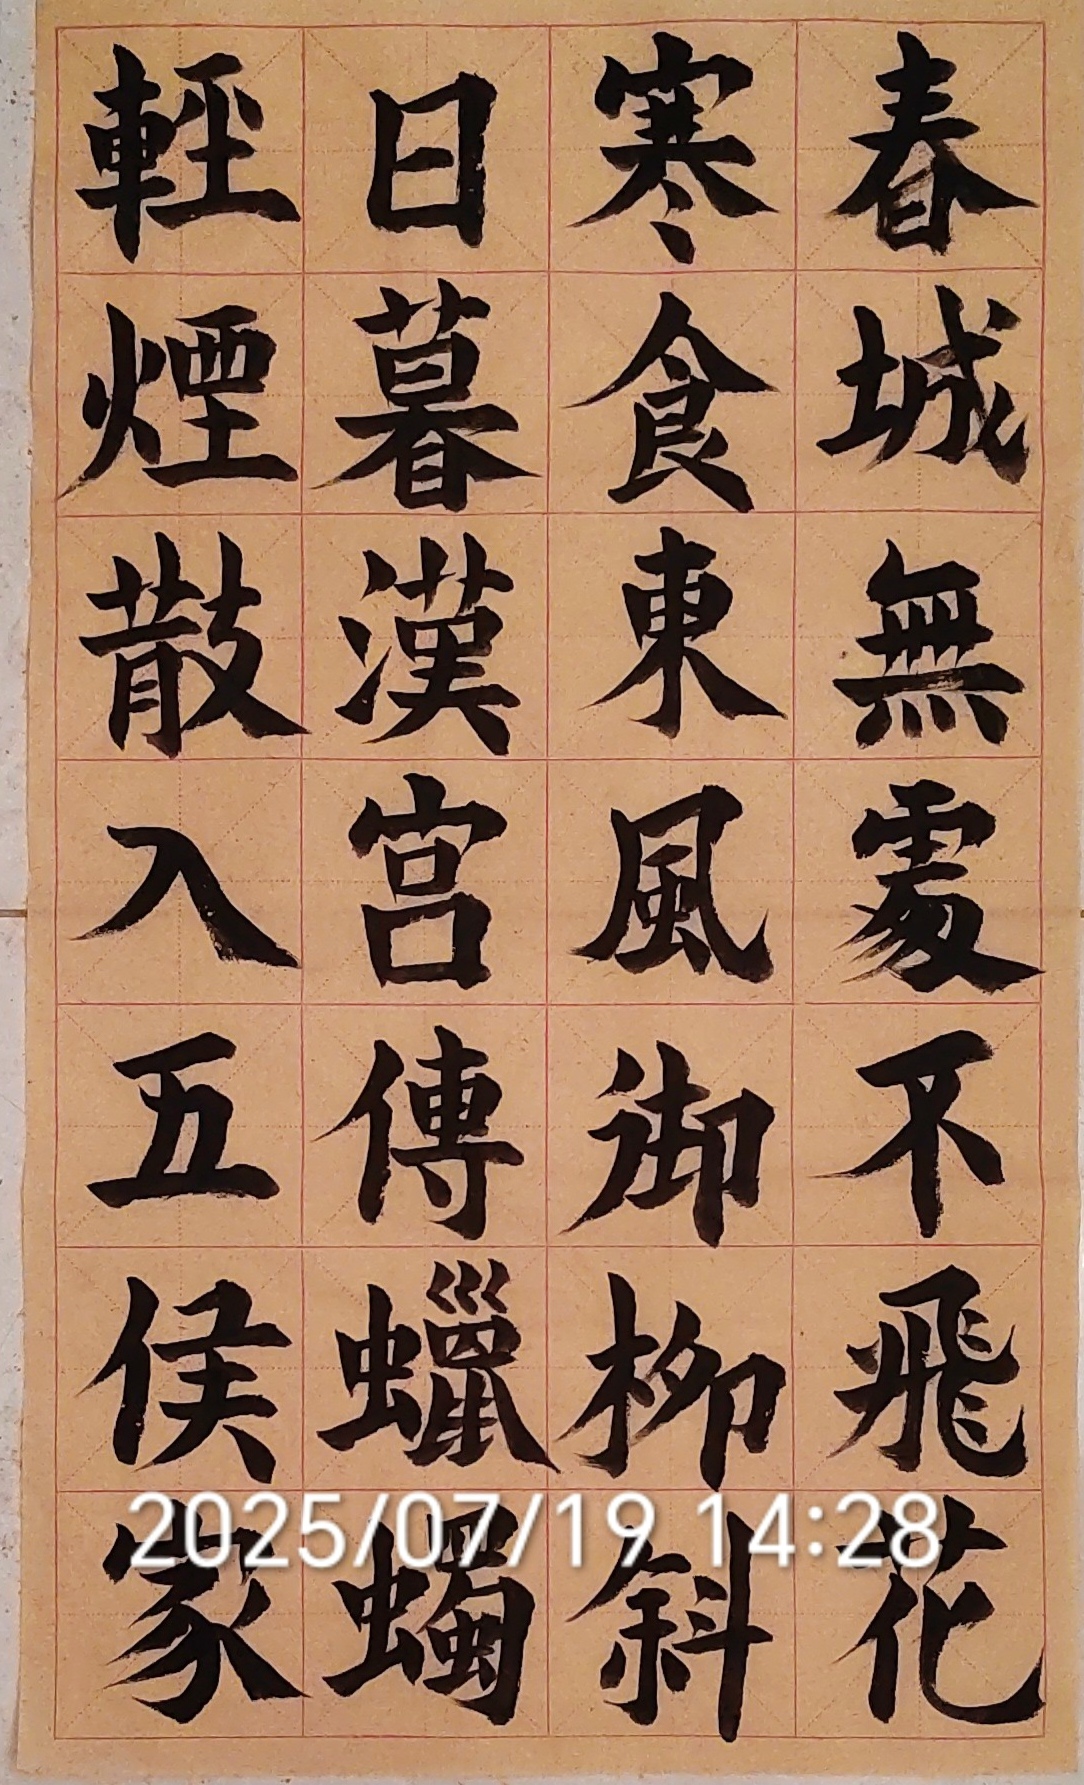 春城無處不飛花
寒食東風御柳斜
日暮漢宮傳蠟蠋
輕煙散入五侯家
2025/07/19 14:28